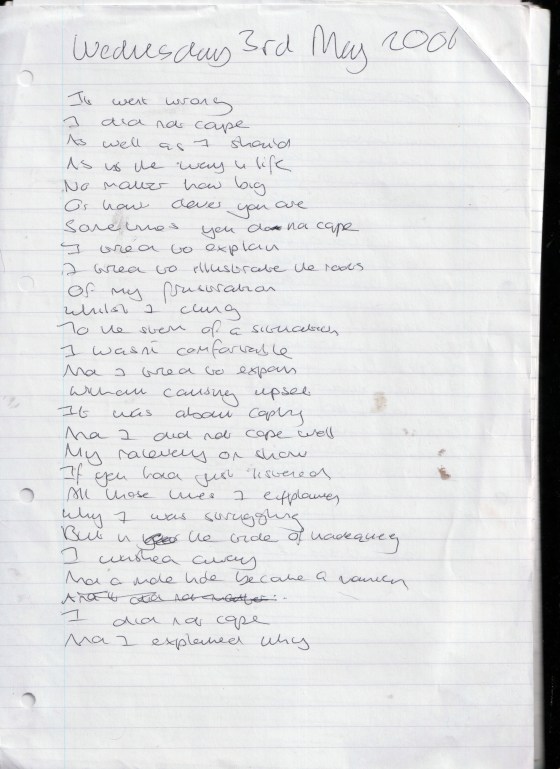 Wednesday 3rd May 2006
It went wrong
I did not cope
As well as I should
As is the way in life
No matter how big
Or how clever you are
Sometimes you do not cope
I tried to explain
I tried to illustrate the roots
Of my frustration
Whilst I clung
To the stem of a situation
I wasn't comfortable
And I tried to explain
Without causing upset
It was about coping
And I did not cope well
My on show
If you had just listened
All those times I explained
Why I was struggling
But in the tide of inadequacy
I washed away
And a rude tide became a
And it did not matter
I did not cope
And I explained why